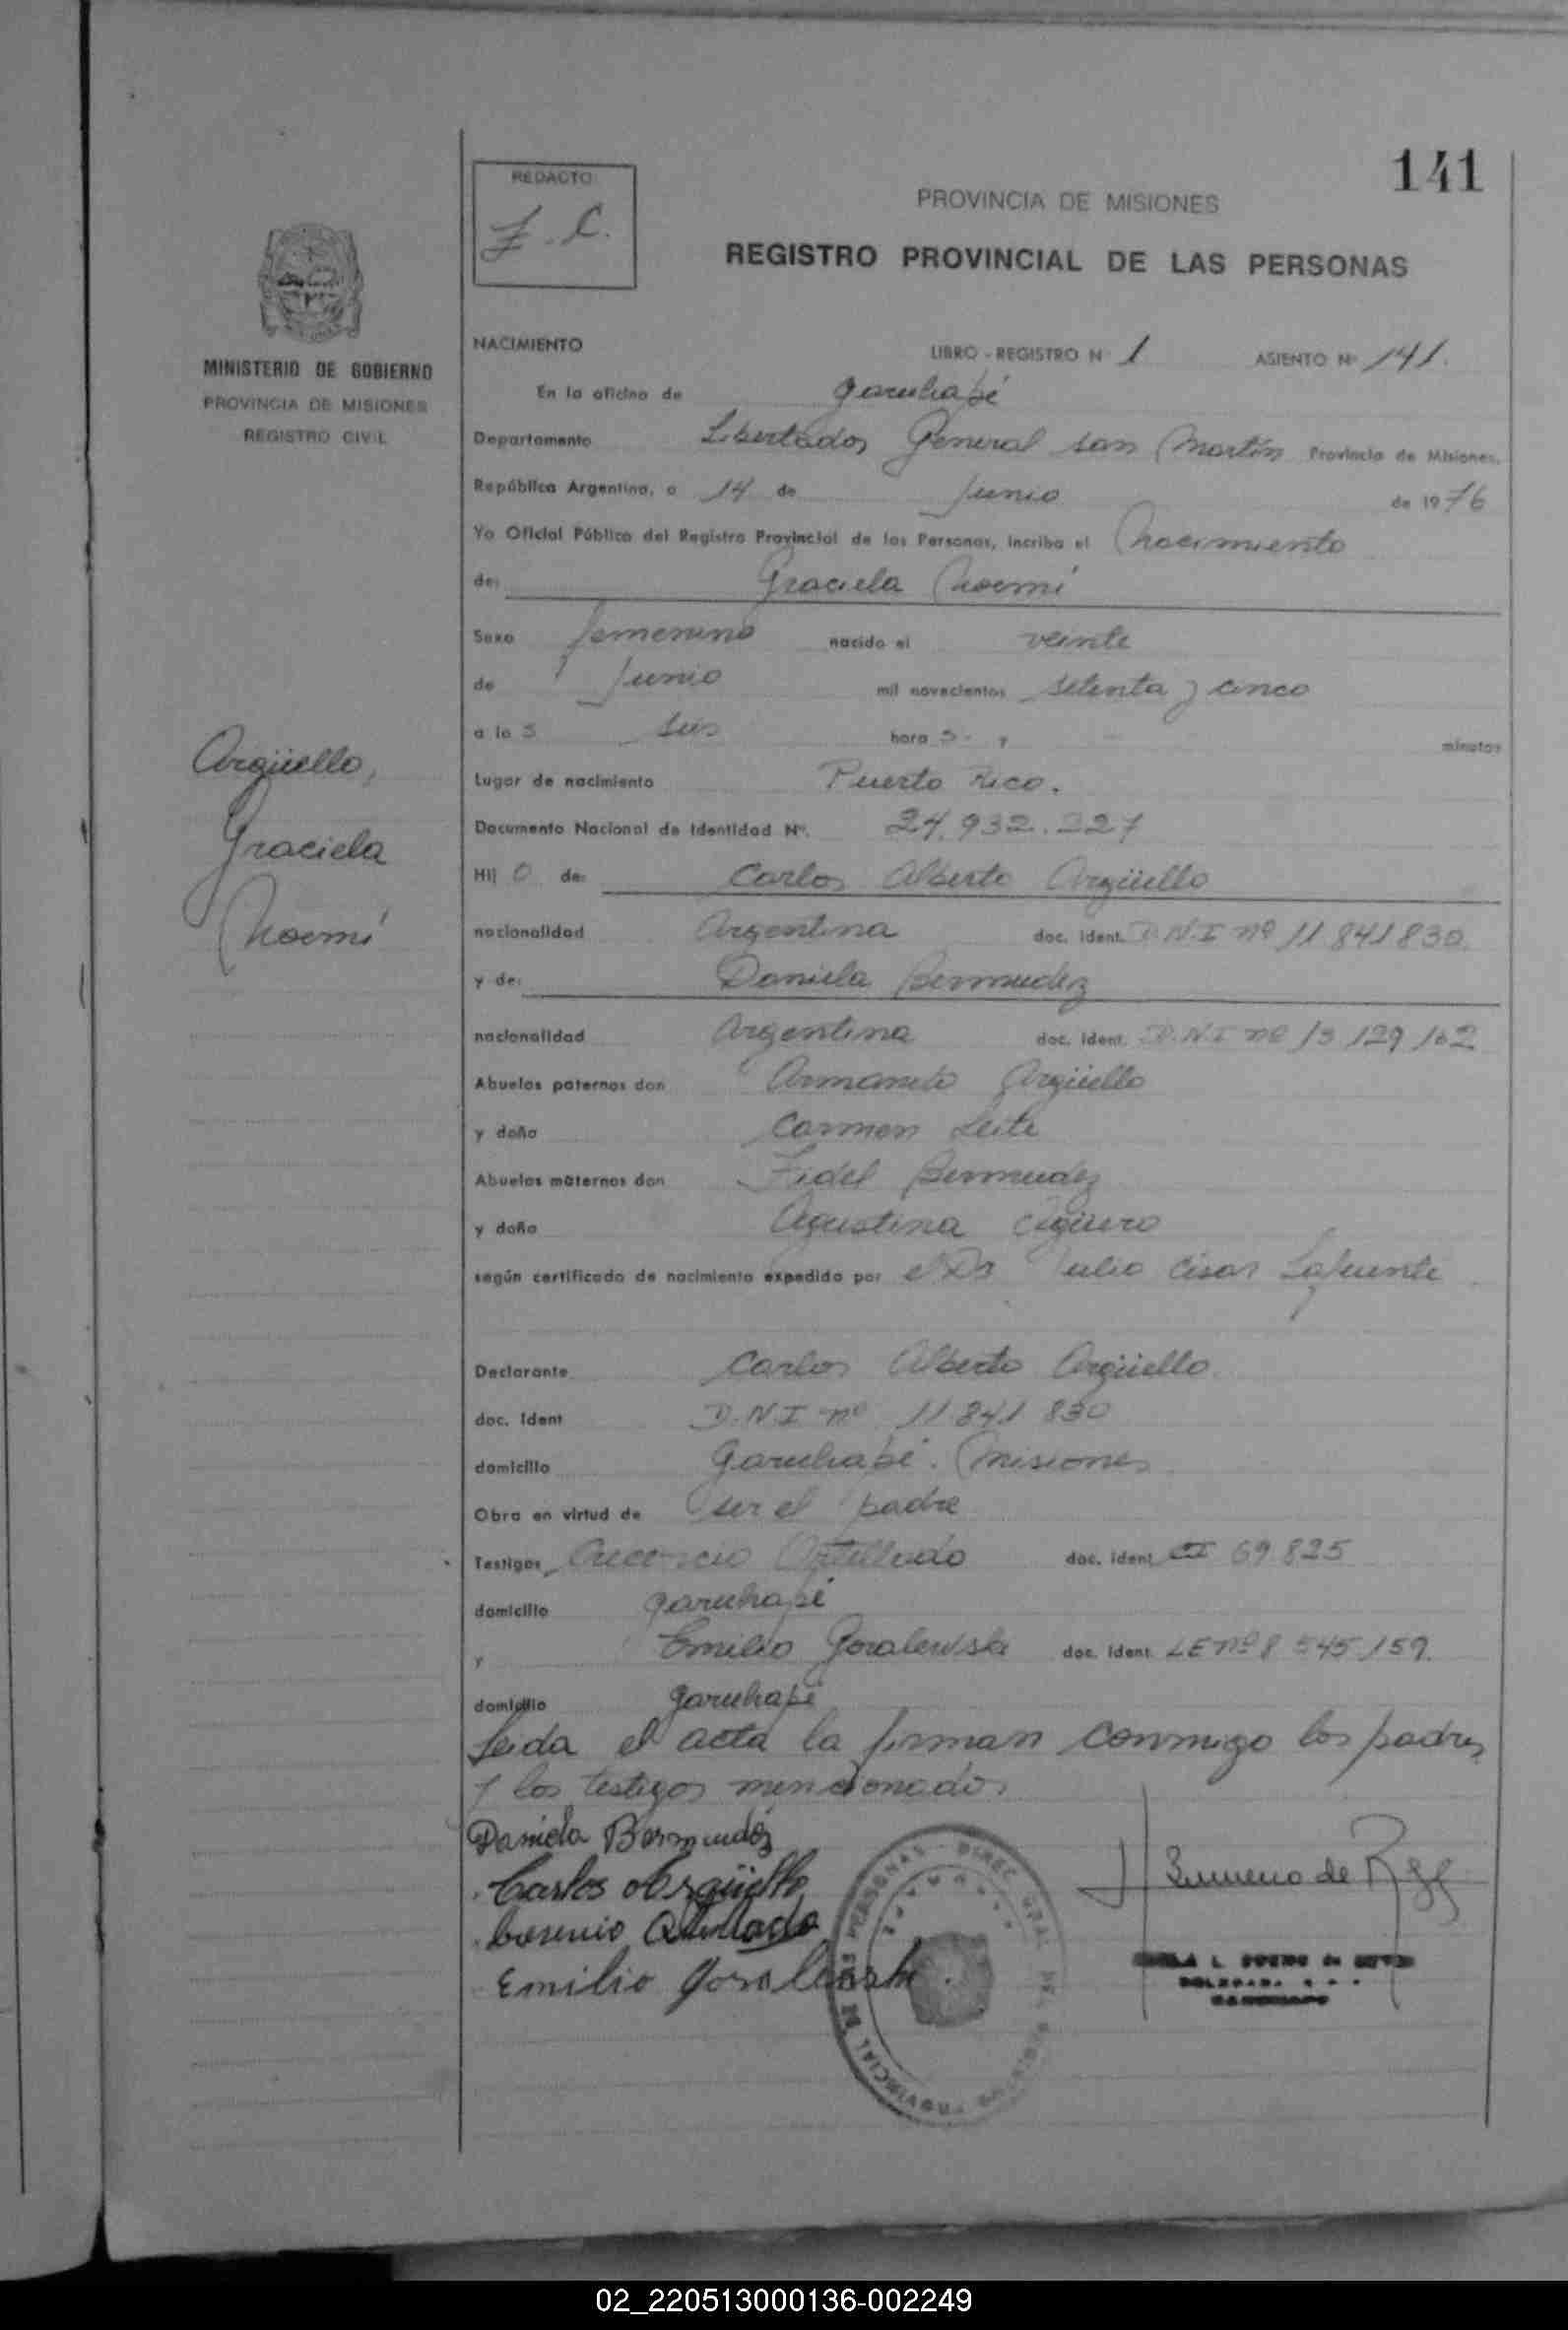 141
REDACTO
PROVINCIA DE MISIONES
REGISTRO PROVINCIAL DE LAS PERSONAS
MINISTERIO DE GOBIERNO
PROVINCIA DE MISIONES
REGISTRO CIVIL
NACIMIENTO LIBRO - REGISTRO N° 1 ASIENTO Nº 141.
En la oficina de Garuhapé
Departamento Libertador General San Martín Provincia de Misiones.
República Argentina, a 14 de Junio de 1976
Yo Oficial Público del Registro Provincial de las Personas, incribo el Nacimiento
de: Graciela Noemí
Sexo femenino nacido el veinte
de Junio mil novecientos setenta y cinco
a las seis horas - y - minutos
Lugar de nacimiento Puerto Rico.
Documento Nacional de Identidad Nº. 24.932.227
Hijo de: Carlos Alberto Argüello
nacionalidad Argentina doc. ident. D.N.I nº 11 841 830
y de: Daniela Bermudez
nacionalidad Argentina doc. ident. D.N.I nº 13 129 162
Abuelos paternos don Armando Argüello
y doña Carmen Leite
Abuelos maternos don Fidel Bermudez
y doña Agustina Agüero
según certificado de nacimiento expedido por el Dr Julio César Lafuente
Declarante Carlos Alberto Argüello
doc. Ident D.N.I nº 11 841 830
domicilio Garuhapé. Misiones
Obra en virtud de ser el padre
Testigos doc. ident CI 69 825
domicilio Garuhapé
y Emilio Goralewski doc. ident. LE nº 8 545 159.
domicilio Garuhapé
Leida el acta la firman conmigo los padres
y los testigos mencionados
Daniela Bermudez
Carlos Argüello
Emilio Goralewski
Argüello,
Graciela
Noemí
02_220513000136-002249